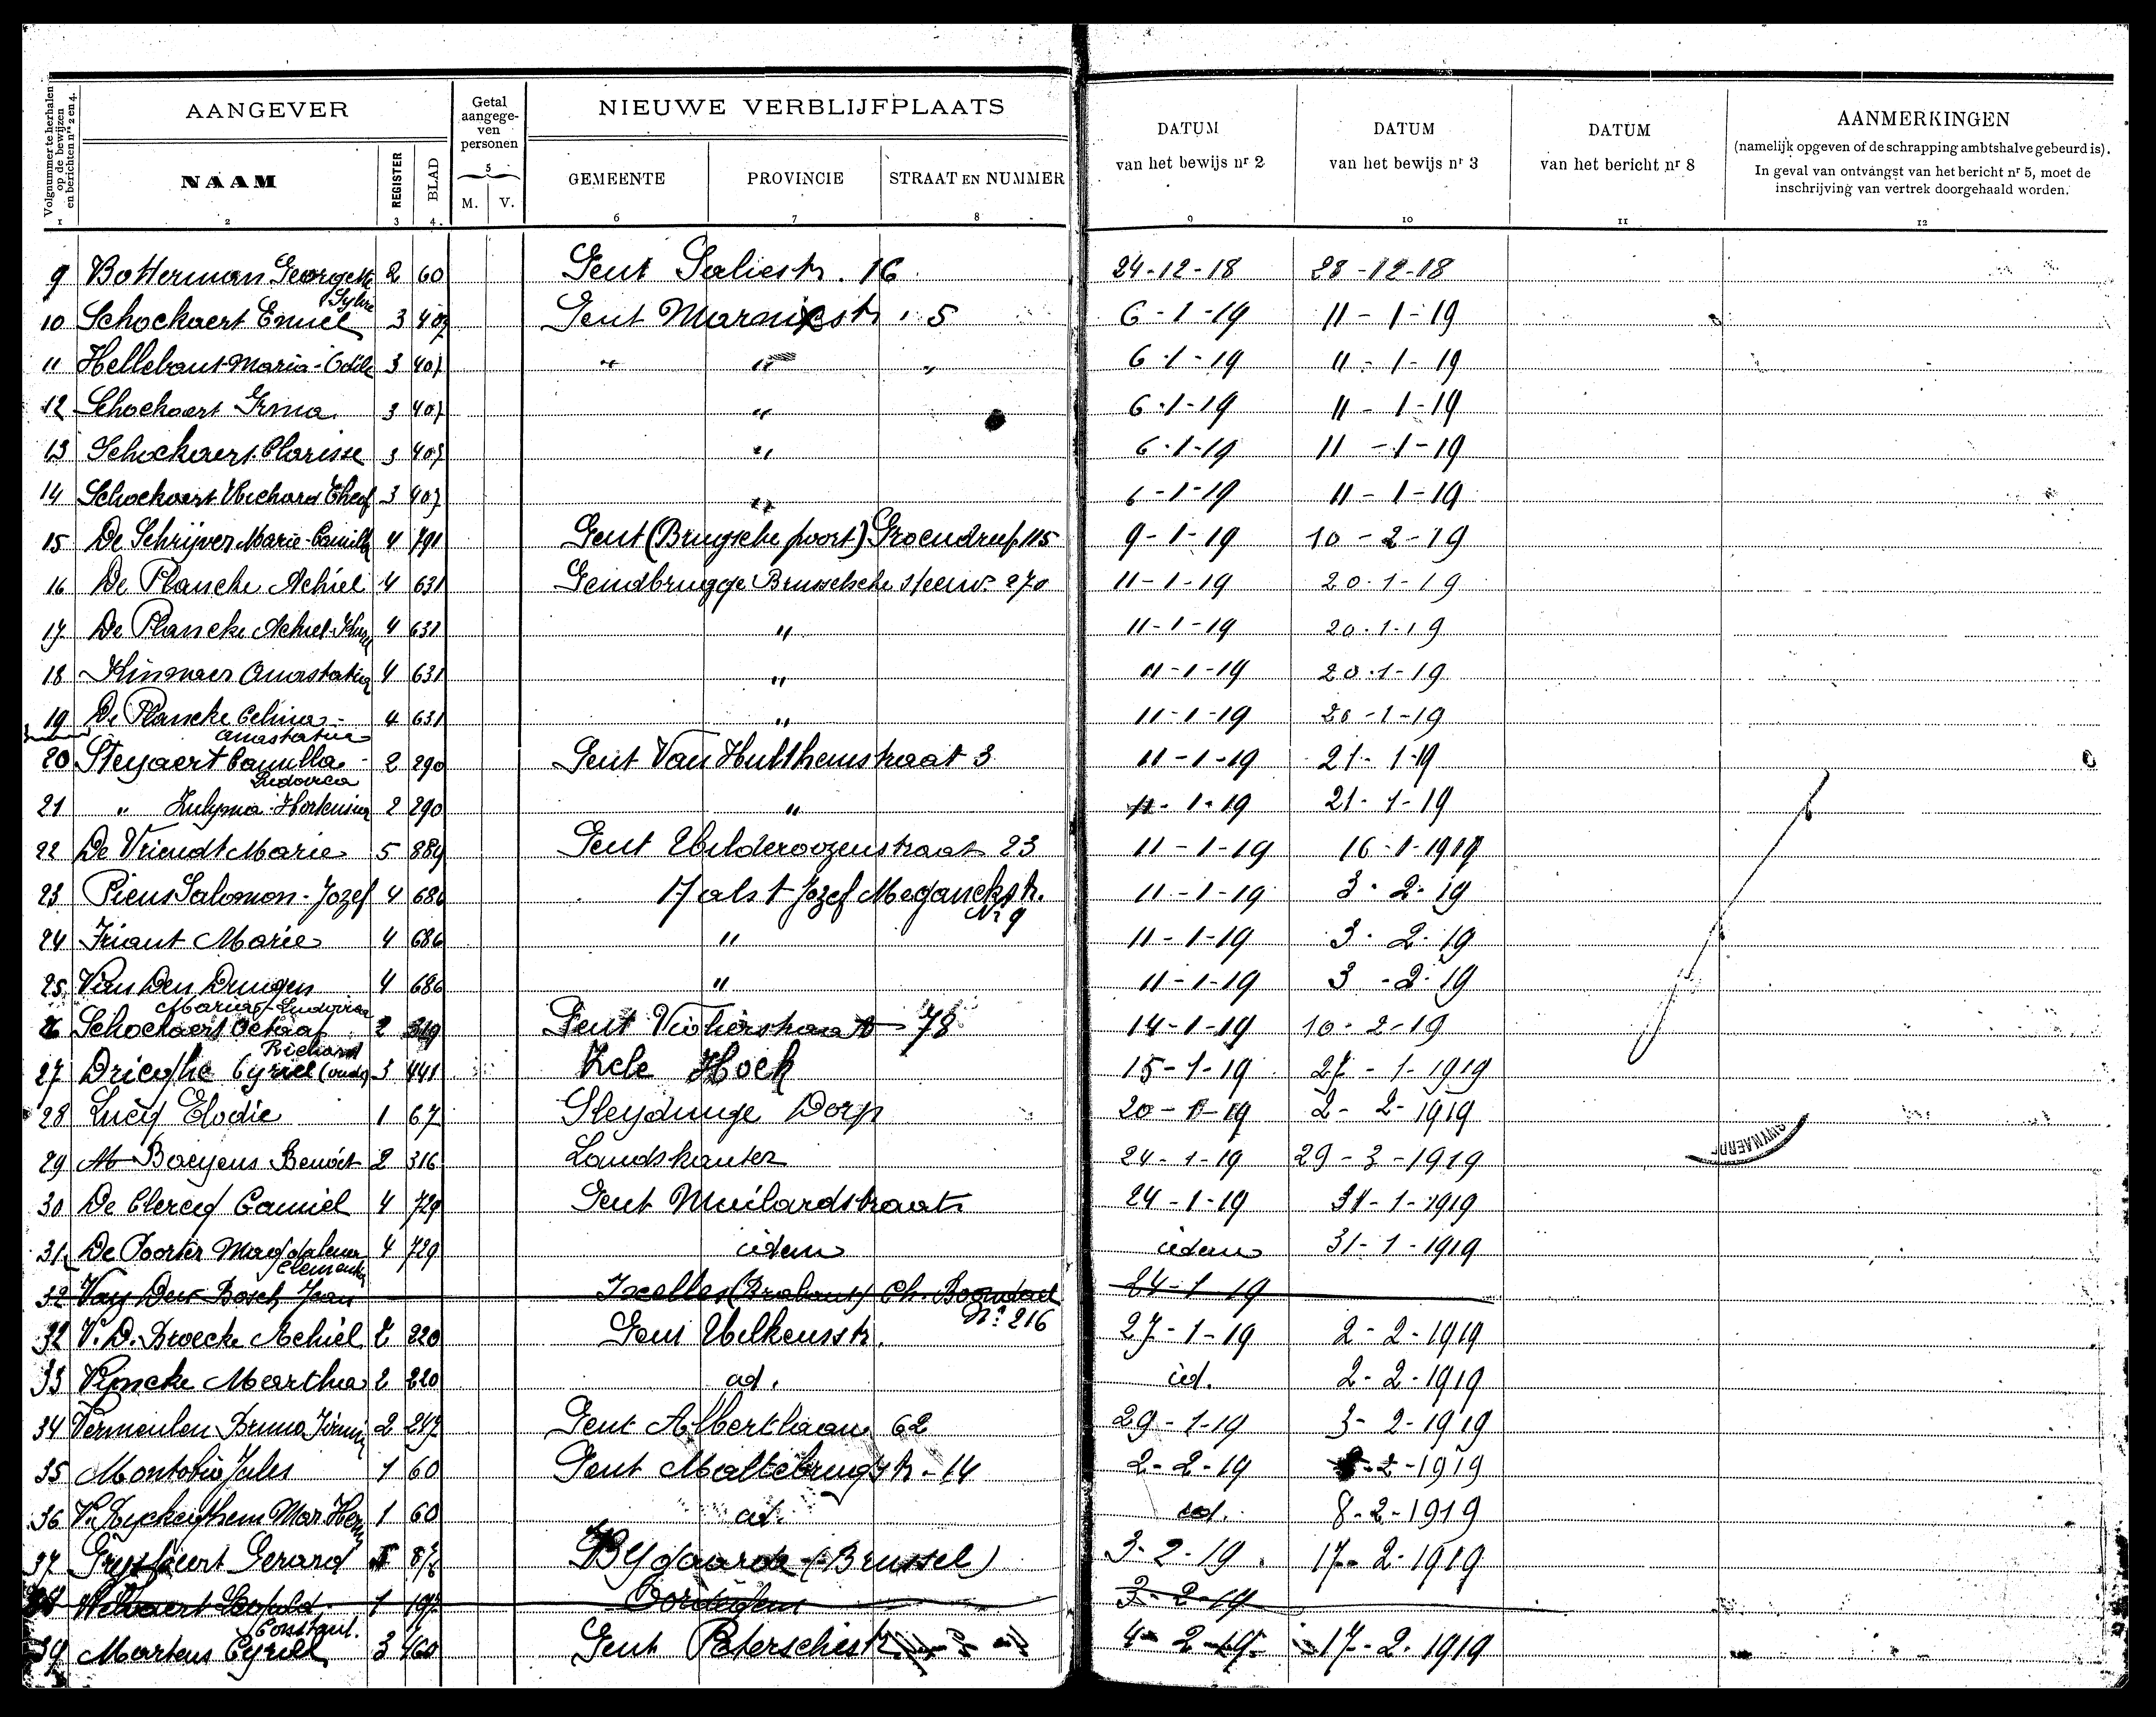 Volgnummer te herhalen op de bewijzen en berichten nrs 2 en 4.
AANGEVER
Getal aangegeven personen
NIEUWE VERBLIJFPLAATS
DATUM van het bewijs nr 2
DATUM van het bewijs nr 3
DATUM van het bericht nr 8
AANMERKINGEN
(namelijk opgeven of de schrapping ambtshalve gebeurd is).
In geval van ontvangst van het bericht nr 5, moet de inschrijving van vertrek doorgehaald worden.
NAAM REGISTER BLAD 5 M. V. GEMEENTE PROVINCIE STRAAT EN NUMMER
1 2 3 4. 6 7 8 9 10 11 12
9 Botterman Georgette 2 60 Gent Saliestr. 16 24-12-18 28-12-18
Sylvie
10 Schockaert Emiel 3 407 Gent Marnixstr. 5 6-1-19 11-1-19
11 Hellebaut Maria-Odile 3 407 " " " 6-1-19 11-1-19
12 Schockaert Irma 3 407 " 6-1-19 11-1-19
13 Schockaert Clarisse 3 407 " 6-1-19 11-1-19
14 Schockaert Richard Theof 3 407 " 6-1-19 11-1-19
15 De Schrijver Marie-Camilla 4 791 Gent (Brugsche poort) Groendreef 115 9-1-19 10-2-19
16 De Plancke Achiel 4 631 Gendbrugge Brusselsche steenw. 270 11-1-19 20-1-19
17 De Plancke Achiel 4 631 " 11-1-19 20.1.19
18 Anastatia 4 631 " 11-1-19 20.1-19
19 De Plancke Celina- 4 631 " 11-1-19 20-1-19
Anastatia
20 Steyaert Camilla- 2 290 Gent Van Hulthemstraat 3 11-1-19 21-1-19
Ludovica
21 " Zulyma-Hortensia 2 290 " 11-1-19 21-1-19
22 De Vriendt Marie 5 889 Gent Wilderoozenstraat 23 11-1-19 16-1-1919
23 Piens Salomon-Jozef 4 686 Aalst Jozef Meganckstr. 11-1-19 3-2-19
Nr 9
24 Friant Marie 4 686 " 11-1-19 3-2-19
25 Van Den 4 686 " 11-1-19 3-2-19
Maria-Ludovica
26 Schockaert Octaaf 2 319 Gent Violierstraat 78 14-1-19 10-2-19
Richard
27 Drieghe Cyriel (oude) 3 441 Zele Hoek 15-1-19 27-1-1919
28 Lucq Elodie 1 67 Sleydinge Dorp 20-1-19 2-2-1919
ZWYNAERDE
29 Baeyens Benoit 2 316 Landskouter 24-1-19 29-3-1919
30 De Clercq Camiel 4 729 Gent Muilaardstraat 24-1-19 31-1-1919
31 De Poorter Magdalena 4 729 idem idem 31-1-1919
Clementia
32 Van Den Bosch Jean Ixelles (Brabant) Ch. Boondael 24-1-19
No 216
32 V. D. Broecke Achiel 2 220 Gent Wilkensstr. 27-1-19 2-2-1919
33 Vyncke Martha 2 220 id. id. 2-2-1919
34 Vermeulen Bruno Firmin 2 247 Gent Albertlaan 62 29-1-19 3-2-1919
35 Montobio Jules 1 60 Gent Maltebrugstr-14 2-2-19 8-2-1919
36 V. Hyckeghem Mar. Herm 1 60 id. id. 8-2-1919
37 Gerard Bygaarde (Brussel) 3-2-19 17-2-1919
Welvaert Leopold 1 197 3-2-19
Constant.
39 Martens Cyriel 3 460 Gent 4-2-19 17-2-1919